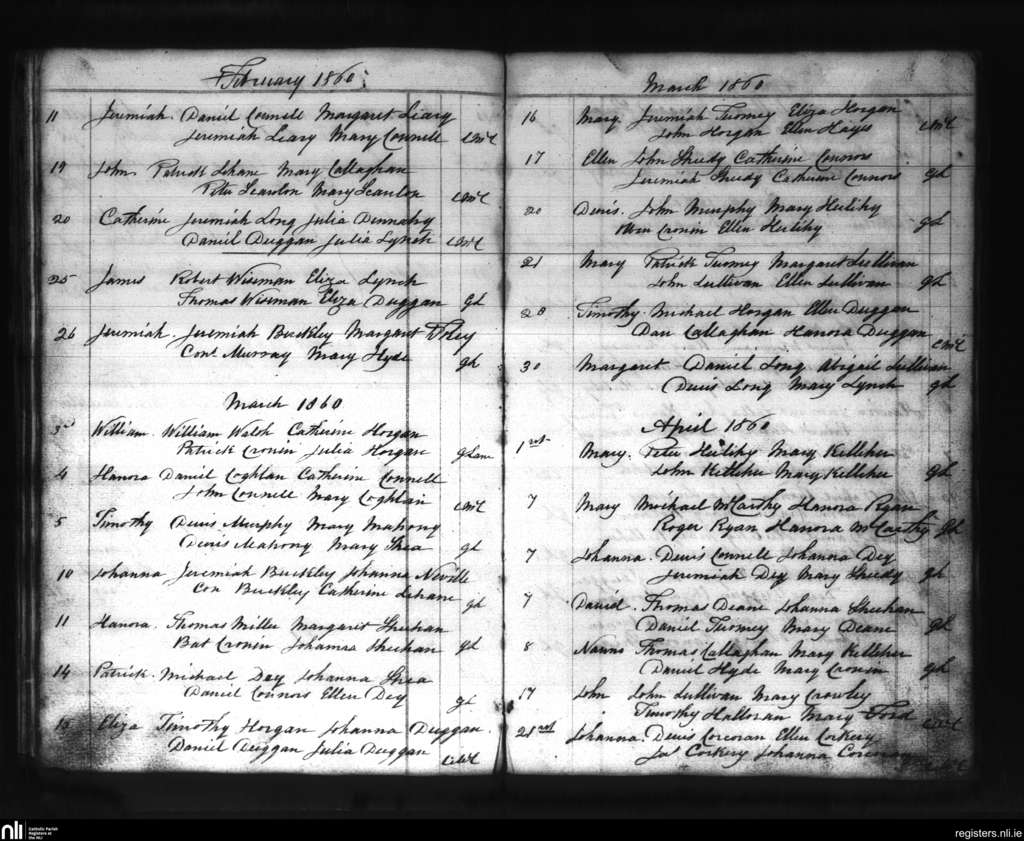 February 1860:
11 Jeremiah. Daniel Connell Margaret Leary
Jeremiah Leary Mary Connell CMcC
19 John Patrick Lehane Mary Callaghan
Peter Scanlon Mary Scanlon CMcC
20 Catherine Jeremiah Long Julia Dennahy
Daniel Duggan Julia Lynch CMcC
25 James Robert Wiseman Eliza Lynch
Thomas Wiseman Eliza Duggan gL
26 Jeremiah. Jeremiah Buckley Margaret Foley
Cont Murray Mary Hyde gL
March 1860
3rd William. William Walsh Catherine Horgan
Patrick Cronin Julia Horgan
4 Hanora Daniel Coghlan Catherine Connell
John Connell Mary Coghlan CMcC
5 Timothy Denis Murphy Mary Mahony
Denis Mahony Mary Shea gL
10 Johanna Jeremiah Buckley Johanna Neville
Con Buckley Catherine Lehane gL
11 Hanora. Thomas Miller Margaret Sheehan
Bat Cronin Johanna Sheehan gL
14 Patrick. Michael Dey Johanna Shea
Daniel Connors Ellen Dey gL
Eliza Timothy Horgan Johanna Duggan.
Daniel Duggan Julia Duggan CMcC
March 1860
16 Mary Jeremiah Twomey Eliza Horgan
John Horgan Ellen Hayes CMcC
17 Ellen John Sheedy Catherine Connors
Jeremiah Sheedy Catherine Connors gL
20 Denis. John Murphy Mary Herlihy
Cronin Ellen Herlihy gL
21 Mary Patrick Twomey Margaret Sullivan
John Sullivan Ellen Sullivan gL
28 Timothy. Michael Horgan Ellen Duggan
Dan Callaghan Hanora Duggan CMcC
30 Margaret Daniel Long Abigail Sullivan
Denis Long Mary Lynch gL
April 1860
1st Mary. Peter Herlihy Mary Kelleher
John Kelleher Mary Kelleher gL
7 Mary Michael McCarthy Hanora Ryan
Roger Ryan Hanora McCarthy gL
7 Johanna. Denis Connell Johanna Dey
Jeremiah Dey Mary Sheedy gL
7 David. Thomas Deane Johanna Sheehan
Daniel Twomey Mary Deane gL
8 Nanno Thomas Callaghan Mary Kelleher
Daniel Hyde Mary Cronin gL
17 John John Sullivan Mary Crowley
Timothy Halloran Mary Ford CMcC
21st Johanna. Denis Corcoran Ellen Corkery
Jas Corkery Johanna Corcoran
nli Catholic Parish
Registers at
the NLI
registers.nli.ie